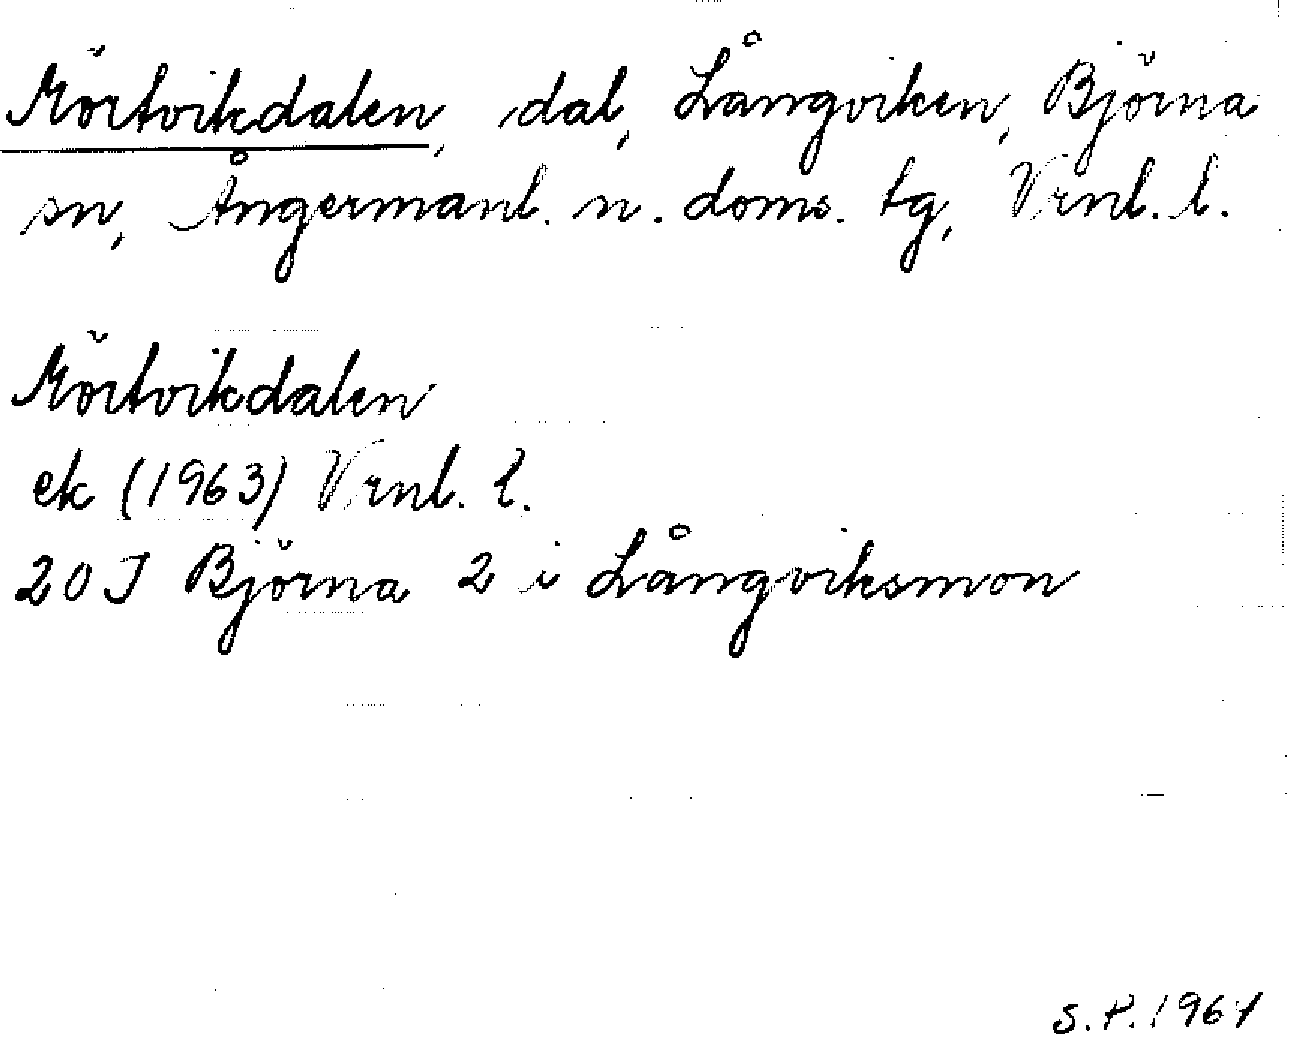 Mörtvikdalen, dal, Långviken, Björna
sn, Ångermanl. n. doms. tg, Vrnl. l.
Mörtvikdalen
ek (1963) Vrnl. l.
20 J Björna 2 i Långviksmon
S.P. 1964